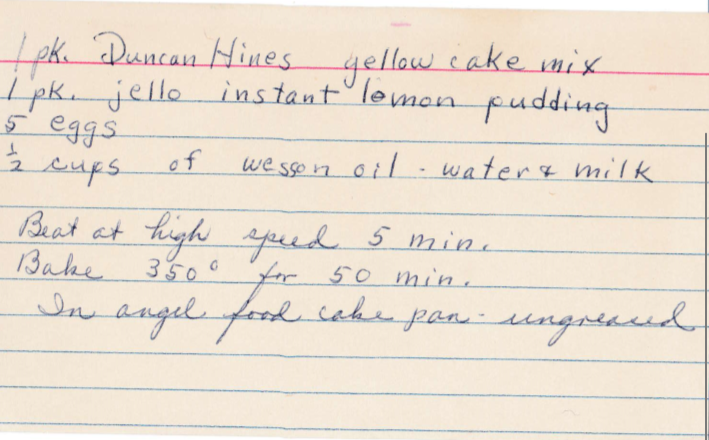 1 pk. Duncan Hines yellow cake mix
1 pk. jello instant lemon pudding
5 eggs
½ cups of wesson oil - water & milk
Beat at high speed 5 min.
Bake 350° for 50 min.
In angel food cake pan - ungreased